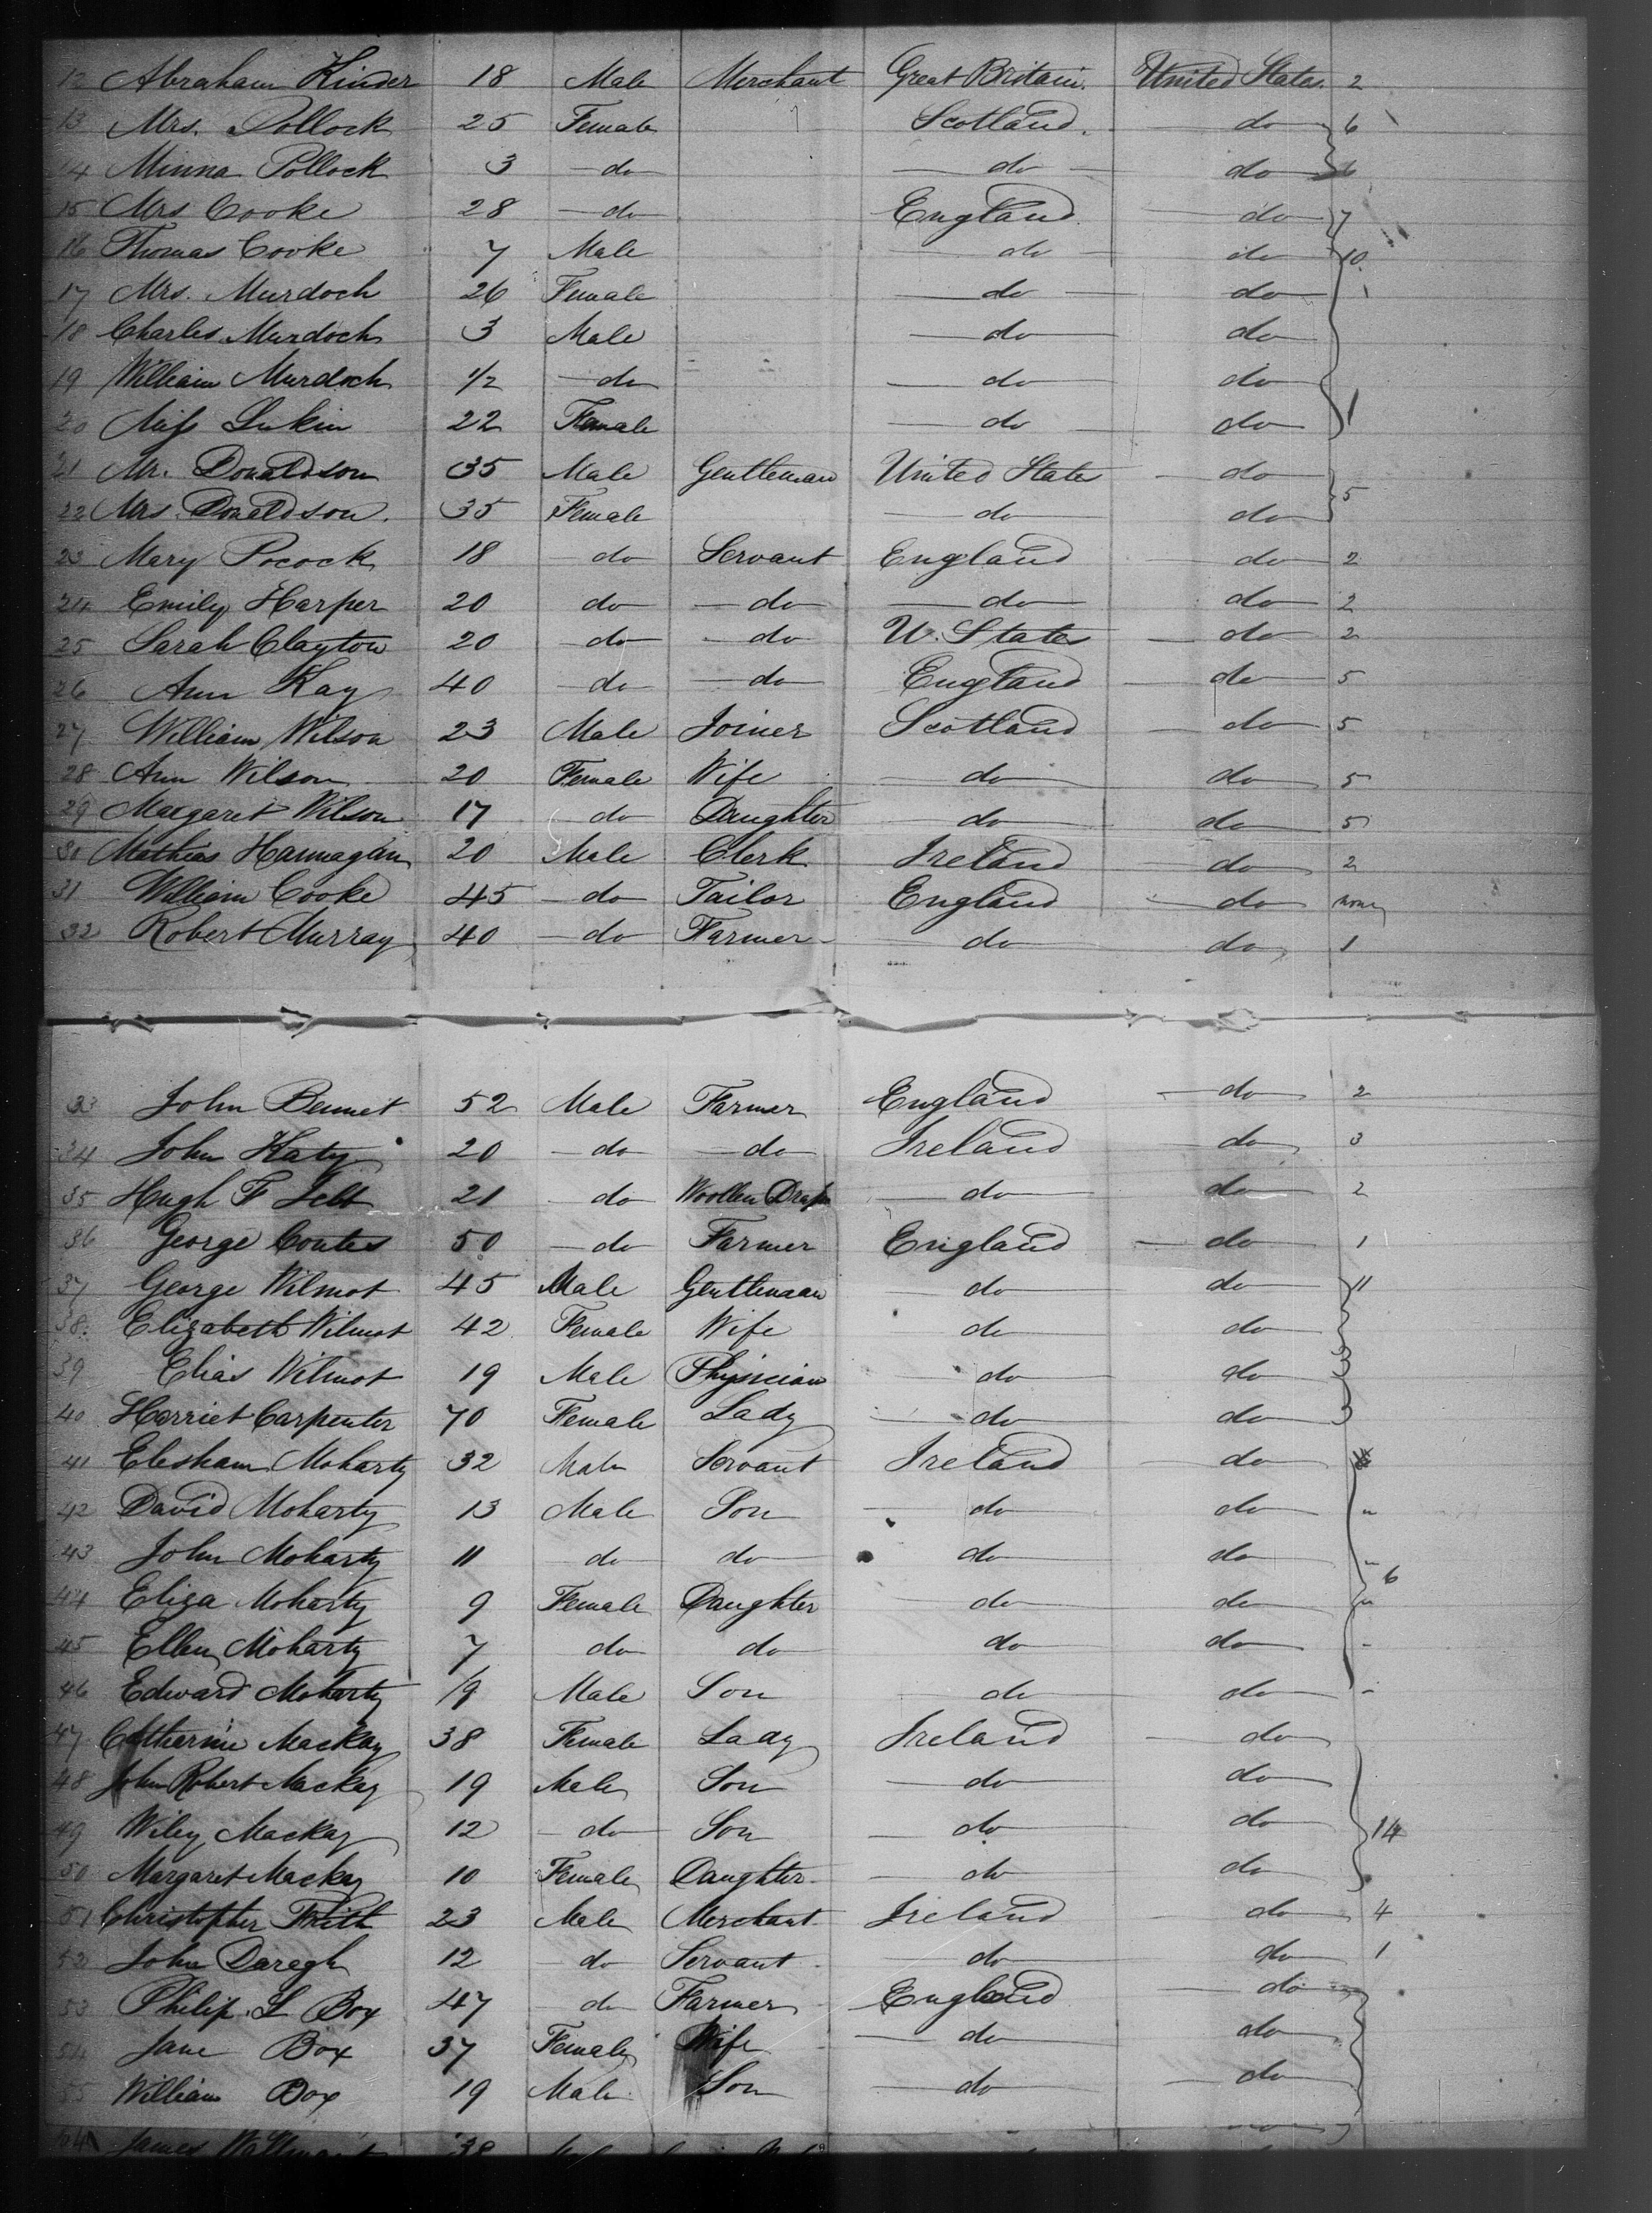 12 Abraham Kinder 18 Male Merchant Great Britain. United States. 2
13 Mrs. Pollock 25 Female Scotland. do 6
14 Minna Pollock 3 do do do 6
15 Mrs Cooke 28 do England do 7
16 Thomas Cooke 7 Male do do 10
17 Mrs. Murdoch 26 Female do do
18 Charles Murdoch 3 Male do do
19 William Murdoch 1/2 do do do
20 Miss Lukin 22 Female do do 1
21 Mr. Donaldson 35 Male Gentleman United States do
22 Mrs. Donaldson. 35 Female do do 5
23 Mary Pocock 18 do Servant England do 2
24 Emily Harper 20 do do do do 2
25 Sarah Clayton 20 do do U. States do 2
26 Ann Kay 40 do do England do 5
27 William Wilson 23 Male Joiner Scotland do 5
28 Ann Wilson 20 Female Wife do do 5
29 Margaret Wilson 17 do Daughter do do 5
30 Mathias Hannagan 20 Male Clerk Ireland do 2
31 William Cooke 45 do Tailor England do none
32 Robert Murray 40 do Farmer do do 1
33 John Bennet 52 Male Farmer England do 2
34 John Katy 20 do do Ireland do 3
35 Hugh F 21 do Woollen Draper do do 2
36 George Coutes 50 do Farmer England do 1
37 George Wilmot 45 Male Gentleman do do 11
38. Elizabeth Wilmot 42 Female Wife do do
39 Elias Wilmot 19 Male Physician do do
40 Harriet Carpenter 70 Female Lady do do
41 Elesham Moharty 32 Male Servant Ireland do
42 David Moharty 13 Male Son do do "
43 John Moharty 11 do do do do "
44 Eliza Moharty 9 Female Daughter do do " 6
45 Ellen Moharty 7 do do do do "
46 Edward Moharty 19 Male Son do do "
47 Catharine Mackay 38 Female Lady Ireland do
48 John Robert Mackay 19 Male Son do do
49 Wiley Mackay 12 do Son do do 14
50 Margaret Mackay 10 Female Daughter do do
51 Christopher Frith 23 Male Merchant Ireland do 4
52 John Daragh 12 do Servant do do 1
53 Philip. L Box 47 do Farmer England do
54 Jane Box 37 Female Wife do do
55 William Box 19 Male Son do do
James 38